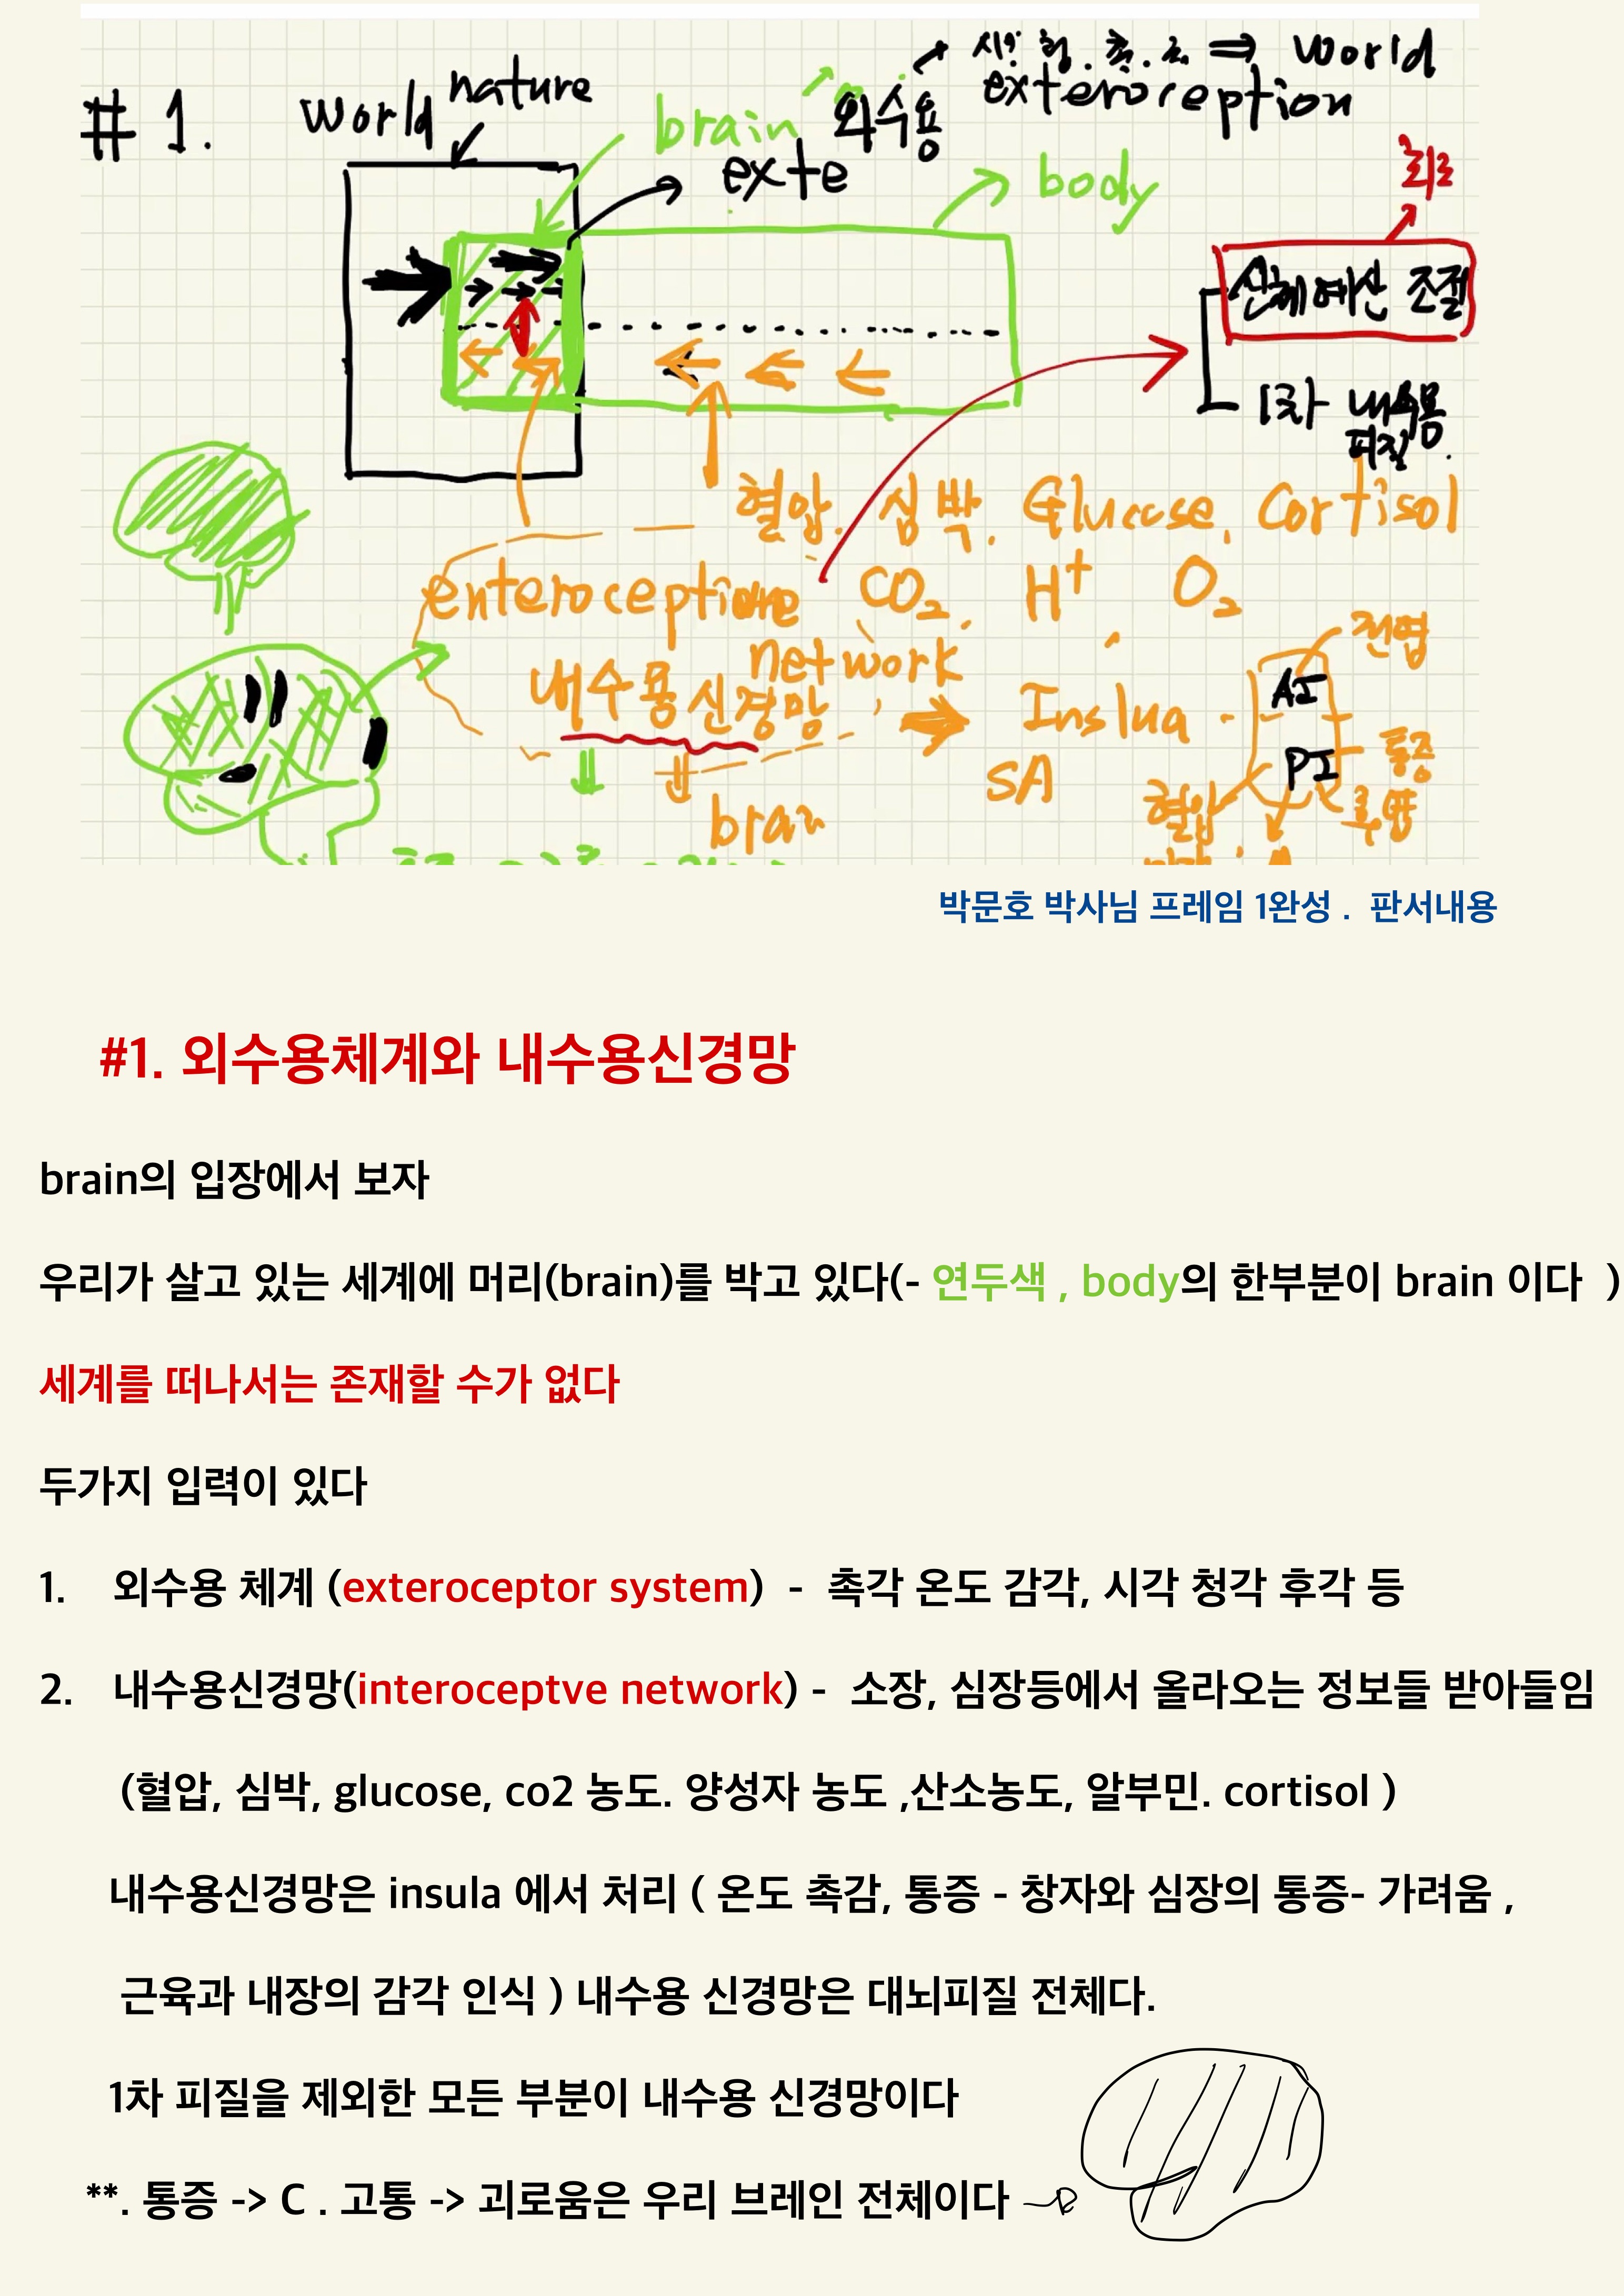 시각. 청. 촉. 고 ⇒ world
# 1. world nature brain 외수용 exteroreception
exte
body
회로
신체예산 조절
1차 내수용
피질.
혈압. 심박. Glucose. Cortisol
enteroceptive CO₂. H⁺ O₂
network
내수용신경망 ⇒ Inslua
전엽
AI
PI
통증
후엽
SA
혈압
brain
박문호 박사님 프레임 1완성 . 판서내용
#1. 외수용체계와 내수용신경망
brain의 입장에서 보자
우리가 살고 있는 세계에 머리(brain)를 박고 있다(- 연두색 , body의 한부분이 brain 이다 )
세계를 떠나서는 존재할 수가 없다
두가지 입력이 있다
1. 외수용 체계 (exteroceptor system) - 촉각 온도 감각, 시각 청각 후각 등
2. 내수용신경망(interoceptve network) - 소장, 심장등에서 올라오는 정보들 받아들임
(혈압, 심박, glucose, co2 농도. 양성자 농도 ,산소농도, 알부민. cortisol )
내수용신경망은 insula 에서 처리 ( 온도 촉감, 통증 - 창자와 심장의 통증- 가려움 ,
근육과 내장의 감각 인식 ) 내수용 신경망은 대뇌피질 전체다.
1차 피질을 제외한 모든 부분이 내수용 신경망이다
**. 통증 -> C . 고통 -> 괴로움은 우리 브레인 전체이다